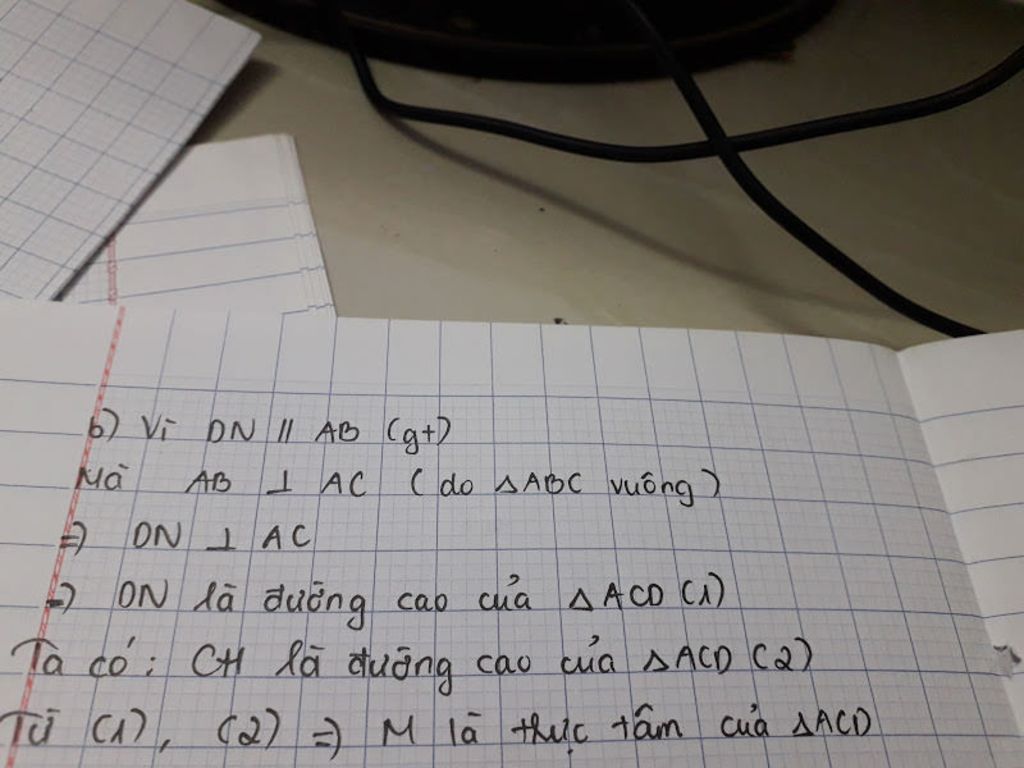 b) Vì DN // AB (gt)
Mà AB ⊥ AC (do ΔABC vuông)
=> DN ⊥ AC
=> DN là đường cao của ΔACD (1)
Ta có: CH là đường cao của ΔACD (2)
Từ (1), (2) => M là thực tâm của ΔACD